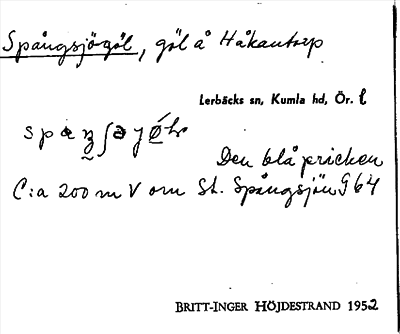 Spångsjögöl, göl å Håkantorp
Lerbäcks sn, Kumla hd, Ör. l
Den blå pricken
C:a 200 m V om St. Spångsjön 9 b 4
BRITT-INGER HÖJDESTRAND 1952